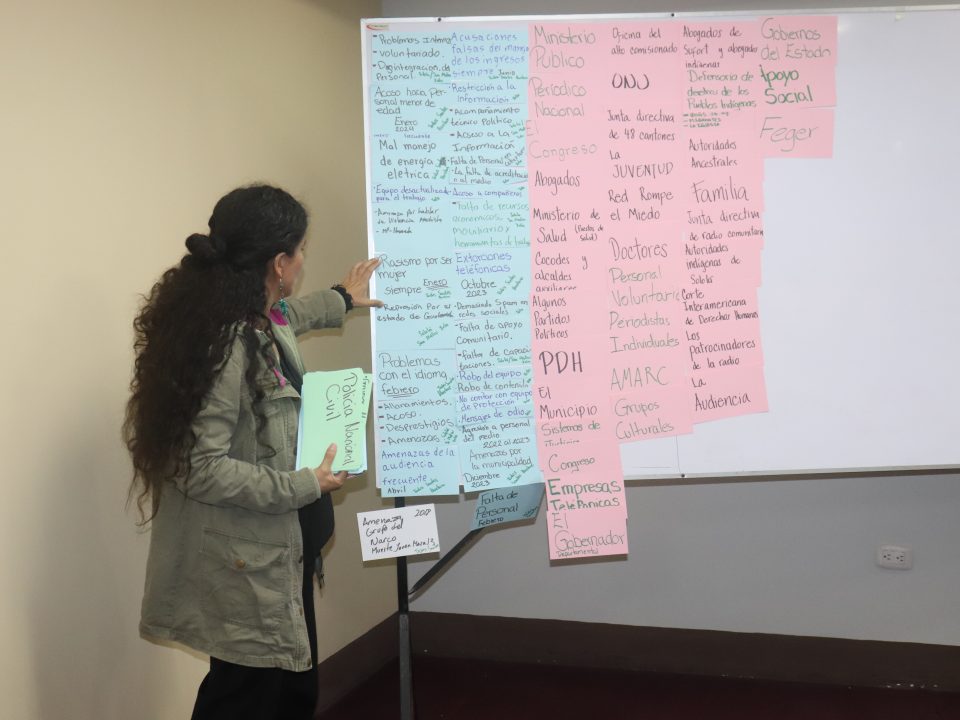 - Problemas
- voluntariado.
- Desintegración de
Personal
Acoso haca Per-
sonal menor de
edad
Enero
2024
Mal manejo
de energía
eletrica
Equipo desactualizado
para el trabajo
- Amenaza por hablar
de Violencia Machista
Rasismo por ser
mujer
siempre Enero
- Represión Por el
estado de
Problemas
con el idioma,
febrero
- Allanamientos.
- Acoso.
- Desprestigios.
- Amenazas
Amenazas de la
audiencia
frecuente
Abril
Acusaciones
falsas del manejo
de los ingresos
siempre Junio
Restricción a la
información
- Acompañamiento
técnico Político
- Acceso a La
Información
- Falta de Personal
- La falta de
al medio
Acoso a compañeros
- Falta de recursos
económicos,
moviliario y
herramientas de
Extorciones
telefónicas
Octubre
2023
- Demasiado Spam en
redes sociales
- Falta de apoyo
Comunitario.
- Falta de capaci
taciones.
- Robo del equipo
Robo de contenido
- No contar con equipo
de protección
- Mensajes de odio
Agresión a personal
del medio
2022 al 2023
Amenazas por
la municipalidad
Diciembre
2023
Falta de
Personal
Febrero
Amenaza 2018
Grupo del
Narco
Muerte
Policía Nacional
Civil
Ministerio
Publico
Períodico
Nacional
El
Congreso
Abogados
Ministerio de
Salud
Cocodes y
alcaldes
auxiliares
Algunos
Partidos
Políticos
PDH
El
Municipio
Sistemas de
Congreso
Empresas
Telefónicas
El
Gobernador
Departamental
Oficina del
alto comisionado
ONU
Junta directiva
de 48 cantones
La
JUVENTUD
Red Rompe
el Miedo
Doctores
Personal
Voluntario
Periodistas
Individuales
AMARC
Grupos
Culturales
Abogados de
Sufort y abogados
indígenas
Defensoria de
derechos de los
Pueblos Indígenas
Autoridades
Ancestrales
Familia
Junta directiva
de radio comunitaria
Autoridades
indígenas de
Sololá
Corte
Interamericana
de Derechos Humanos
Los
patrocinadores
de la radio
La
Audiencia
Gobiernos
del Estado
Apoyo
Social
Feger